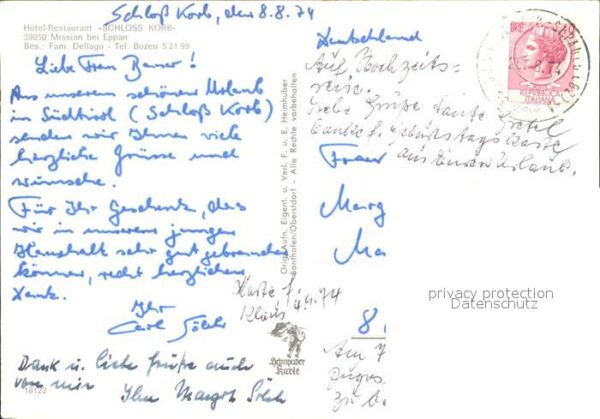 Schloß Korb, den 8.8.74
Hotel-Restaurant «SCHLOSS KORB»
39050 Missian bei Eppan
Bes.: Fam. Dellago - Tel. Bozen 5 21 99
Liebe Frau Bauer!
Aus unserem schönen Urlaub
in Südtirol (Schloß Korb)
senden wir Ihnen viele
herzliche Grüsse und
wünsche.
Für Ihr Geschenk, das
wir in unserem jungen
Haushalt sehr gut gebrauchen
können, recht herzlichen
Dank.
Ihr
Carl
Dank u. liebe Grüße auch
von mir Ihre Margot
18122
Orig. Aufn. Eigent. u. Verl. F. u. E. Heimhuber
Sonthofen/Oberstdorf - Alle Rechte vorbehalten
Karte f.
Klaus 4.9.74
Heimhuber
Karte
Deutschland
Auf Hochzeits-
reise.
Liebe Grüße Tante Gretel
Danke f. Geburtstagskarte
aus Eurem Urlaub.
Frau
Marg
Ma
8
Am 7
zu
REPUBBLICA
ITALIANA
privacy protection
Datenschutz